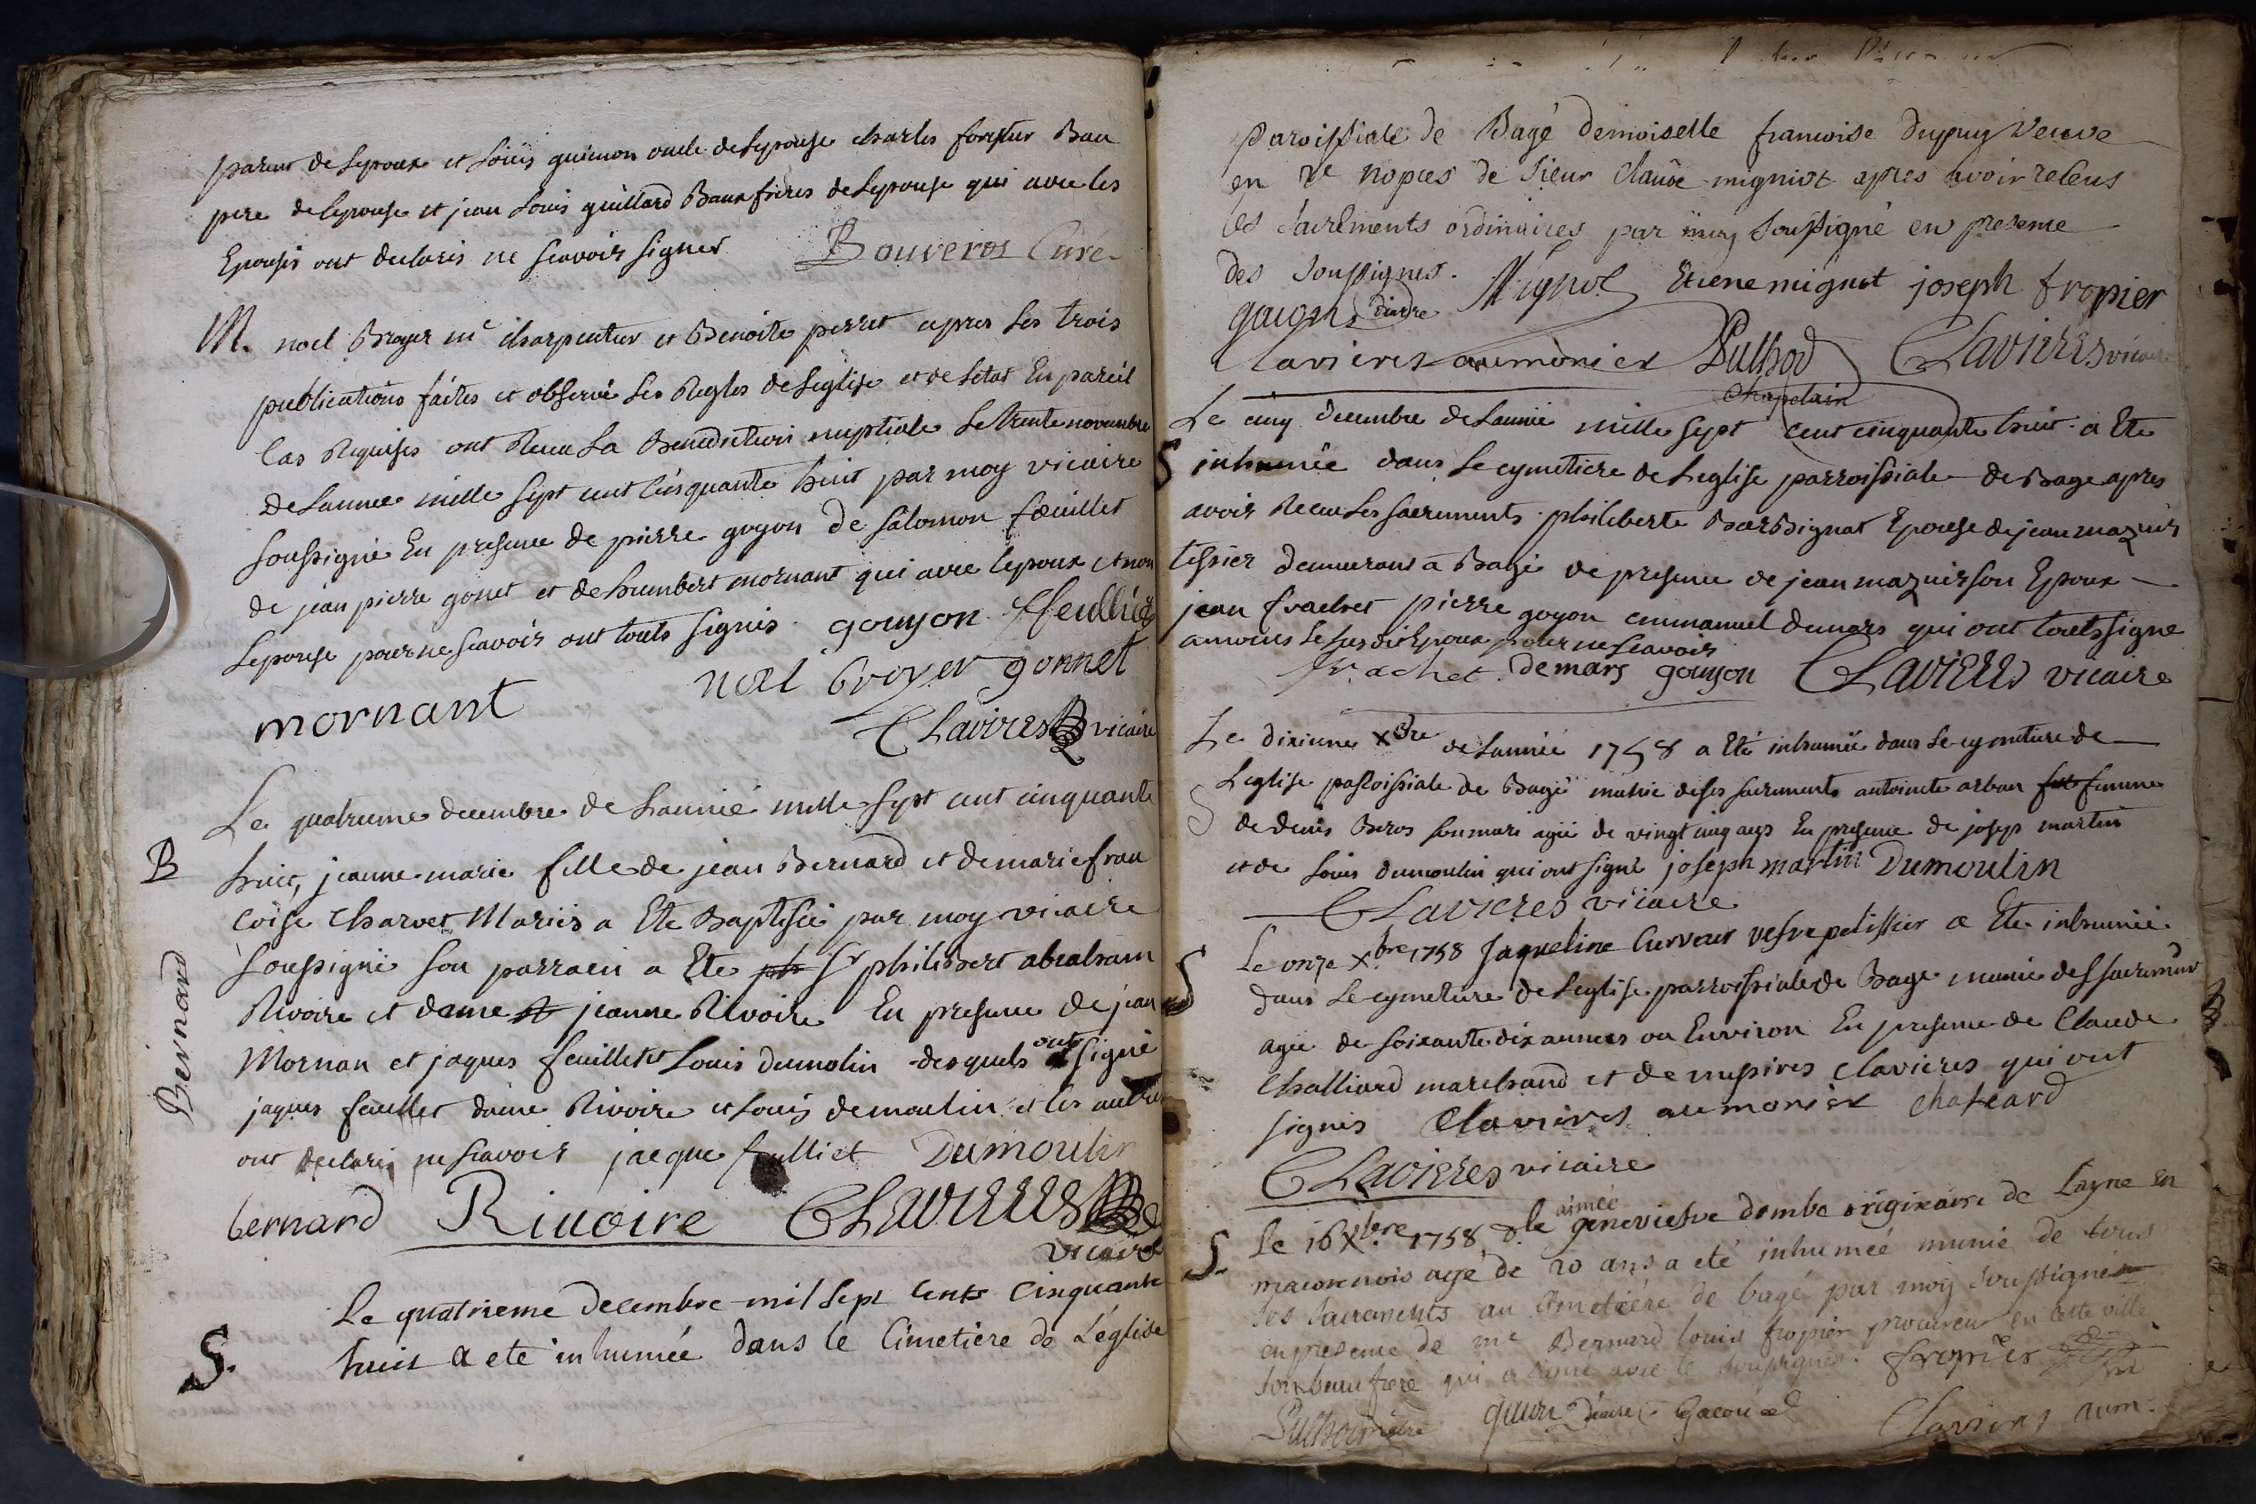 parent de Lepoux et Loüis guimon oncle de Lepouse charles Bau
pere de lepouse et jean Louis guillard Baux freres de Lepouse qui avec les
Epousés ont declarés ne scavoir signer Bouveros Curé
M. noel Broyer me charpentier et Benoite perret apres les trois
publications faites et observé les Regles de Leglise et de Letat En pareil
Cas Requises ont Receu La Benediction nuptiale Le trente novembre
de Lannee mille sept cent Cinquante huit par moy vicaire
soussigné En presence de pierre goyon de salomon feuillet
de jean pierre gonet et de humbert mornant qui avec lepoux et non
Lepouse pour ne scavoir ont touts signés. gouyon ffeullie
noel broyer gonnet
mornant
Clavieres vicaire
Le quatrieme decembre de Lannée mille sept cent cinquante
B
huit, jeanne marie fille de jean Bernard et de marie fran
coise Charvet Mariés a Ete Baptisée par moy vicaire
Bernard
soussigné son parrain a Ete ph Sr philibert abraham
Rivoire et dame jeanne Rivoire En presence de jean
Mornan et jaques feuillet et Louis dumolin desquels ont signé
jaques feuillet dame Rivoire et Louis demoulin et les autres
ont declaré ne scavoir jacque feulliet Dumoulin
bernard Rivoire Clavieres
vicaire
Le quatrieme decembre mil sept Cents Cinquante
S. huit a eté inhumée dans le Cimetiere de Léglise
paroissiale de Bagé demoiselle francoise dupuy veuve
en 2e nopces de sieur Claude migniot apres avoir receus
les sacrements ordinaires par moy soussigné en presence
des soussignes. Mignot Etiene mignot joseph fropier
gacon diacre
Clavieres aumônier Puthod Clavieres vicaire
chapelain
Le cinq decembre de Lannée mille sept cent cinquante huit a Ete
S inhumée dans Le cymetiere de Leglise parroissiale de Bage apres
avoir Receu Les sacrements philiberte Epouse de jean mazuir
tessier demeurant a Bagé de presence de jean mazuir son Epoux
jean frachet pierre goyon emmanuel demars qui ont touts signé
a moins le susdit Epoux pour ne scavoir
frachet demars gouyon Clavieres vicaire
Le dixieme Xbre de Lannée 1758 a Eté inhumée dans Le cymetiere de
Leglise paroissiale de Bagé munie de ses sacrements antoinete arban femme
S
de denis Beros son mari agée de vingt cinq ans En presence de joseph martin
et de Louis dumoulin qui ont signé joseph martin Dumoulin
Clavieres vicaire
S Le onze Xbre 1758 Jaqueline Curveur vefve pelissier a Ete inhumée
dans Le cymetiere de Leglise parroissiale de Bage munie des sacrements
agée de soixante dix années ou Environ En presence de Claude
Challiard marchand et de messires Clavieres qui ont
signés Clavieres aumonier chaliard
Clavieres vicaire
aimée
S. Le 16 Xbre 1758 dlle genevieve dombe originaire de Layne en
maconnois agé de 20 ans a eté inhumée munie de tous
ses sacrements au Cimetiere de bagé par moy soussigné
en presence de me Bernard louis fropier procureur en cette ville
son beau frere qui a signé avec le soussignés. fropier
Puthod gacon diacre Clavieres aum.